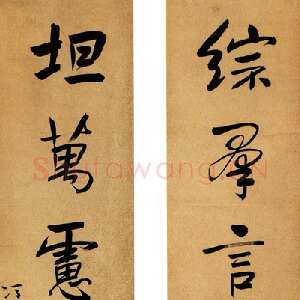 综羣言
坦萬慮
Shufawang.CN